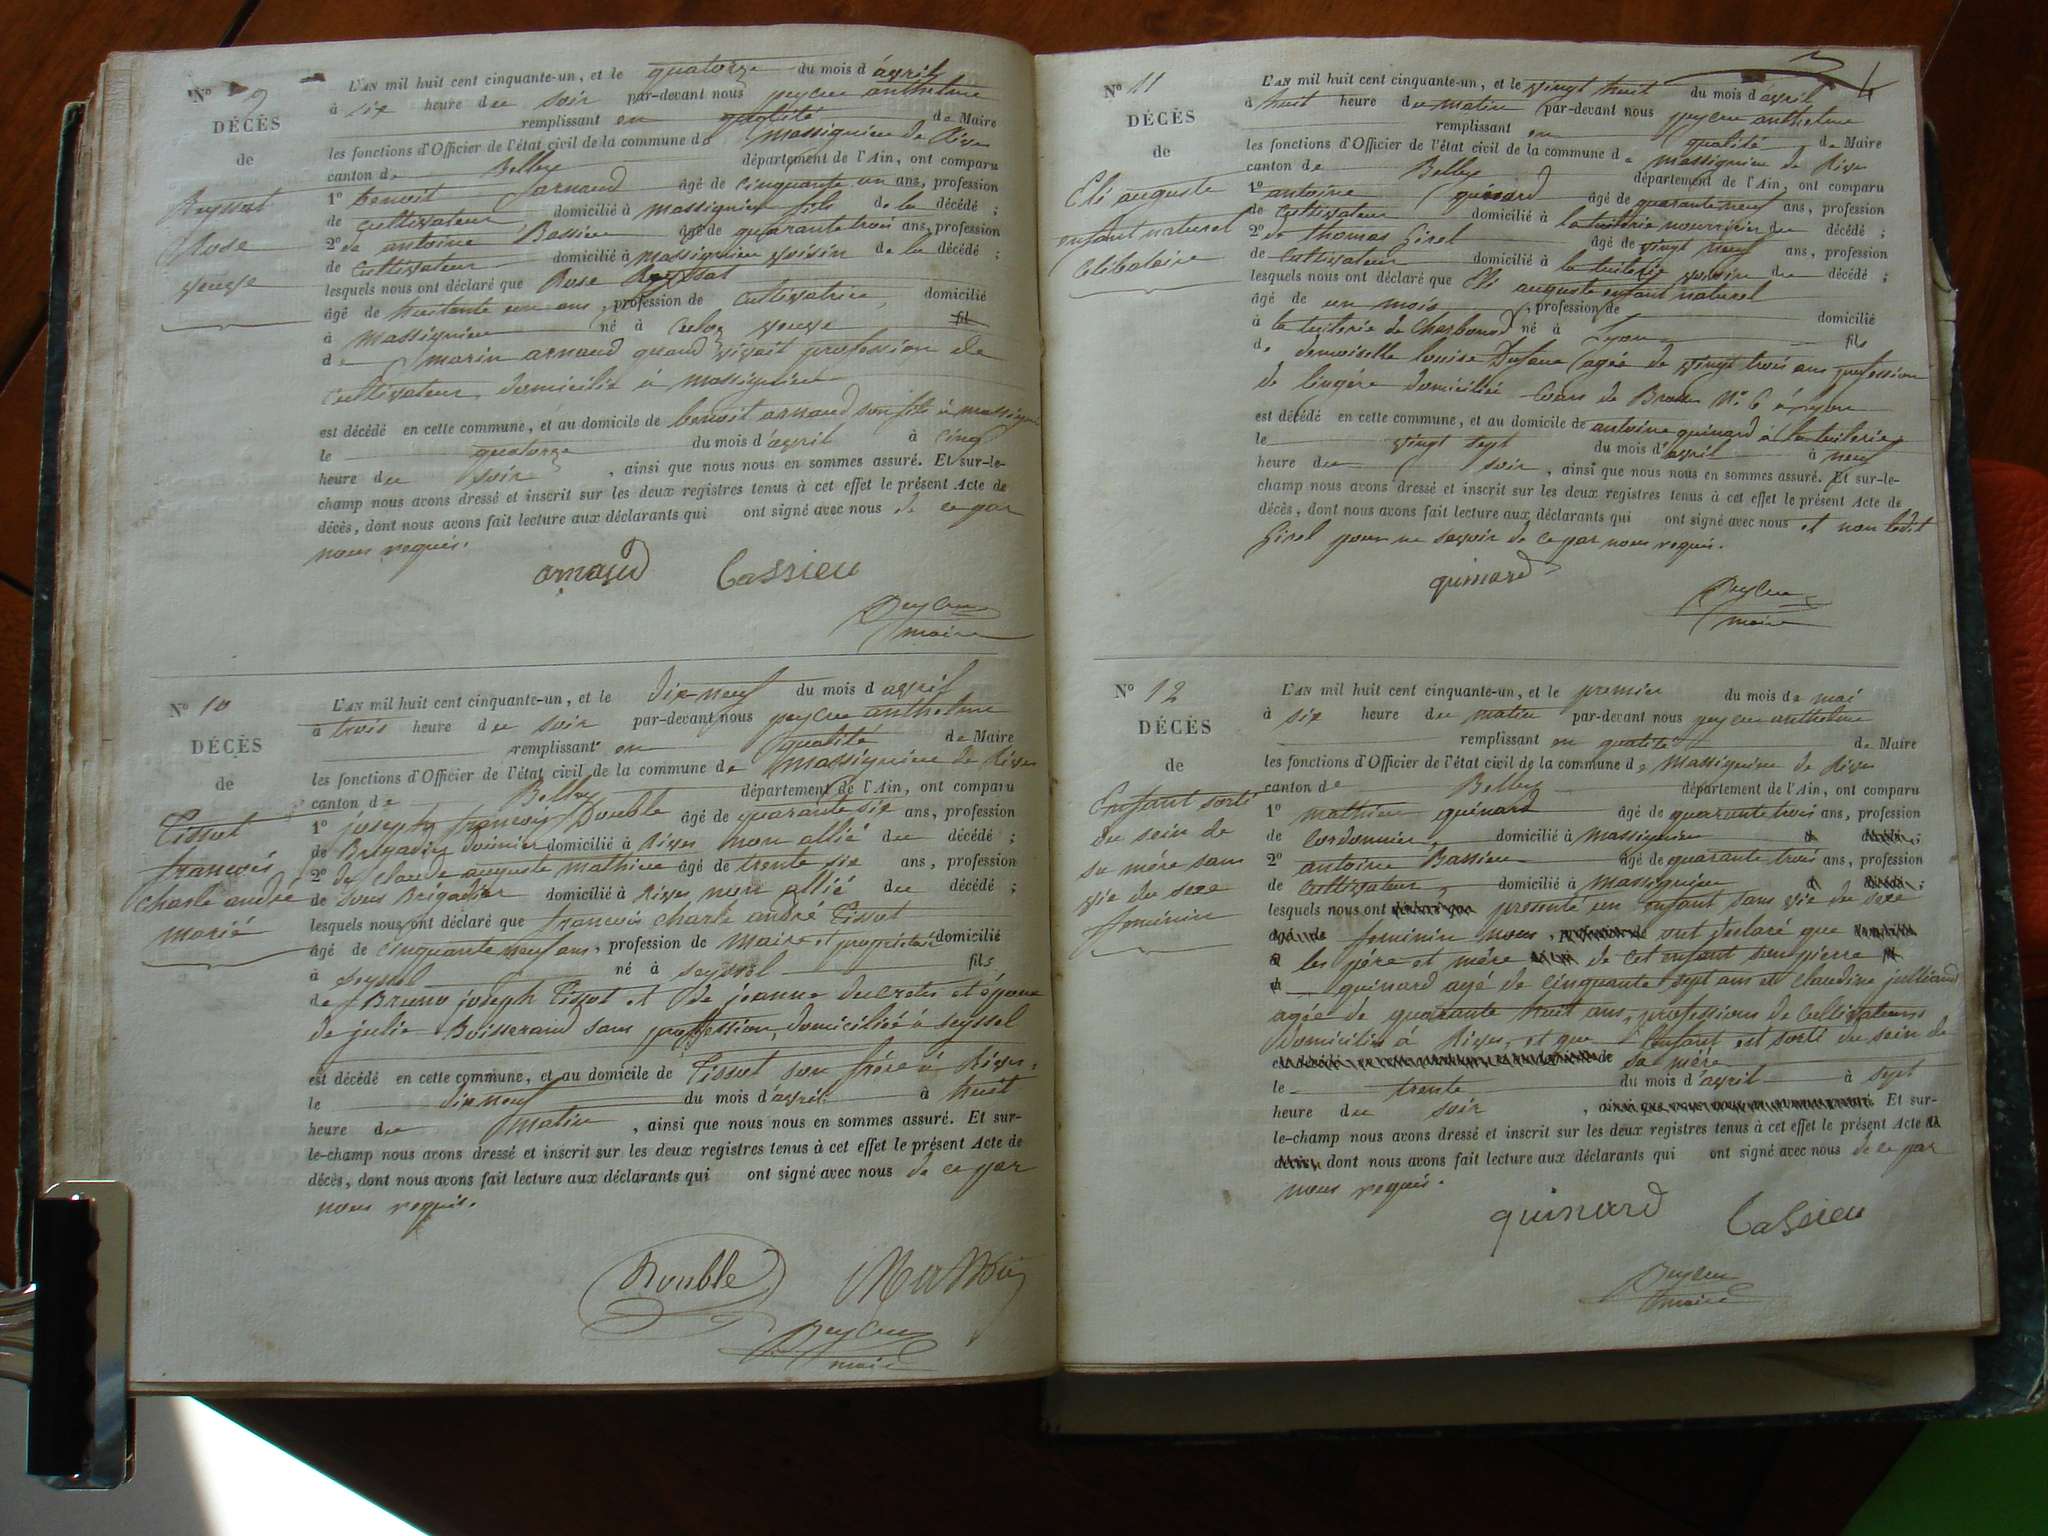 N° 9
DÉCÈS
de
Reynat
Rose
veuve
L'AN mil huit cent cinquante-un, et le quatorze du mois d'avril
à six heure du soir par-devant nous peyleu anthelme
remplissant en qualité de Maire
les fonctions d'Officier de l'état civil de la commune de massignieu de Rives
canton de Belley département de l'Ain, ont comparu
1° benoit arnaud âgé de cinquante un ans, profession
de cultivateur domicilié à massignieu fils de la décédé ;
2° de antoine Bassieu âgé de quarante trois ans, profession
de cultivateur domicilié à massignieu voisin de la décédé ;
lesquels nous ont déclaré que Rose
âgé de huitante un ans, profession de cultivatrice, domicilié
à massignieu né à culoz veuve fil
de marin arnaud quand vivait profession de
cultivateur domicilié à massignieu
est décédé en cette commune, et au domicile de benoit arnaud son fils à massignieu
le quatorze du mois d'avril à cinq
heure du soir, ainsi que nous nous en sommes assuré. Et sur-le-
champ nous avons dressé et inscrit sur les deux registres tenus à cet effet le présent Acte de
décès, dont nous avons fait lecture aux déclarants qui ont signé avec nous de ce par
nous requis.
arnaud Bassieu
Peyleu
maire
N° 10
DÉCÈS
de
Tissot
francois
charle andré
marié
L'AN mil huit cent cinquante-un, et le dix-neuf du mois d avril
à trois heure du soir par-devant nous peyleu anthelme
remplissant en qualité de Maire
les fonctions d'Officier de l'état civil de la commune de massignieu de Rives
canton de Belley département de l'Ain, ont comparu
1° joseph francois Double âgé de quarante six ans, profession
de Brigadier douanier domicilié à Rives non allié du décédé ;
2° de claude auguste mathieu âgé de trente six ans, profession
de sous Brigadier domicilié à Rives non allié du décédé ;
lesquels nous ont déclaré que francois charle andré Tissot
âgé de cinquante neuf ans, profession de Maire et propriétaire domicilié
à seyssel né à seyssel fils
de Bruno joseph Tissot et de jeanne ducretes et époux
de julie Boisserand sans proffession, domiciliéé à seyssel
est décédé en cette commune, et au domicile de Tissot son frére à Rives,
le dix neuf du mois d'avril à huit
heure du matin, ainsi que nous nous en sommes assuré. Et sur-
le-champ nous avons dressé et inscrit sur les deux registres tenus à cet effet le présent Acte de
décès, dont nous avons fait lecture aux déclarants qui ont signé avec nous de ce par
nous requis.
Double Mathieu
Peyleu
maire
N° 11
DÉCÈS
de
Eli auguste
enfant naturel
Celibataire
L'AN mil huit cent cinquante-un, et le vingt huit du mois d'avril
à huit heure du matin par-devant nous peyleu anthelme
remplissant en qualité de Maire
les fonctions d'Officier de l'état civil de la commune de massignieu de Rives
canton de Belley département de l'Ain, ont comparu
1° antoine quinard âgé de quarante neuf ans, profession
de Cultivateur domicilié à la tuilerie nourricier du décédé ;
2° de thomas Girel âgé de vingt neuf ans, profession
de Cultivateur domicilié à la tuilerie voisin du décédé ;
lesquels nous ont déclaré que Eli auguste enfant naturel
âgé de un mois, profession de domicilié
à la tuilerie de Charbonod né à Lyon fils
de demoiselle louise agée de vingt trois ans profession
de lingére domiciliéé Cours de N° 6 à Lyon
est décédé en cette commune, et au domicile de antoine quinard à la tuilerie
le vingt sept du mois d'avril à neuf
heure du soir, ainsi que nous nous en sommes assuré. Et sur-le-
champ nous avons dressé et inscrit sur les deux registres tenus à cet effet le présent Acte de
décès, dont nous avons fait lecture aux déclarants qui ont signé avec nous et non ledit
Girel pour ne savoir de ce par nous requis.
quinard
Peyleu
maire
N° 12
DÉCÈS
de
Enfant sorti
du sein de
sa mére sans
vie du sexe
feminin
L'AN mil huit cent cinquante-un, et le premier du mois de mai
à six heure du matin par-devant nous peyleu anthelme
remplissant en qualité de Maire
les fonctions d'Officier de l'état civil de la commune de Massignieu de Rives
canton de Belley département de l'Ain, ont comparu
1° mathieu quinard âgé de quarante trois ans, profession
de Cordonnier, domicilié à massignieu
2° antoine Bassieu âgé de quarante trois ans, profession
de Cultivateur, domicilié à massignieu
lesquels nous ont presenté un enfant sans vie du sexe
feminin nous ont declaré que
les pére et mére de cet enfant sieur pierre
quinard agé de cinquante sept ans et claudine julliand
agée de quarante huit ans, professions de Cultivateurs
domiciliés à Rives, et que l'enfant est sorti du sein de
sa mére
le trente du mois d'avril à sept
heure du soir, Et sur-
le-champ nous avons dressé et inscrit sur les deux registres tenus à cet effet le présent Acte
dont nous avons fait lecture aux déclarants qui ont signé avec nous de ce par
nous requis.
quinard Bassieu
Peyleu
maire